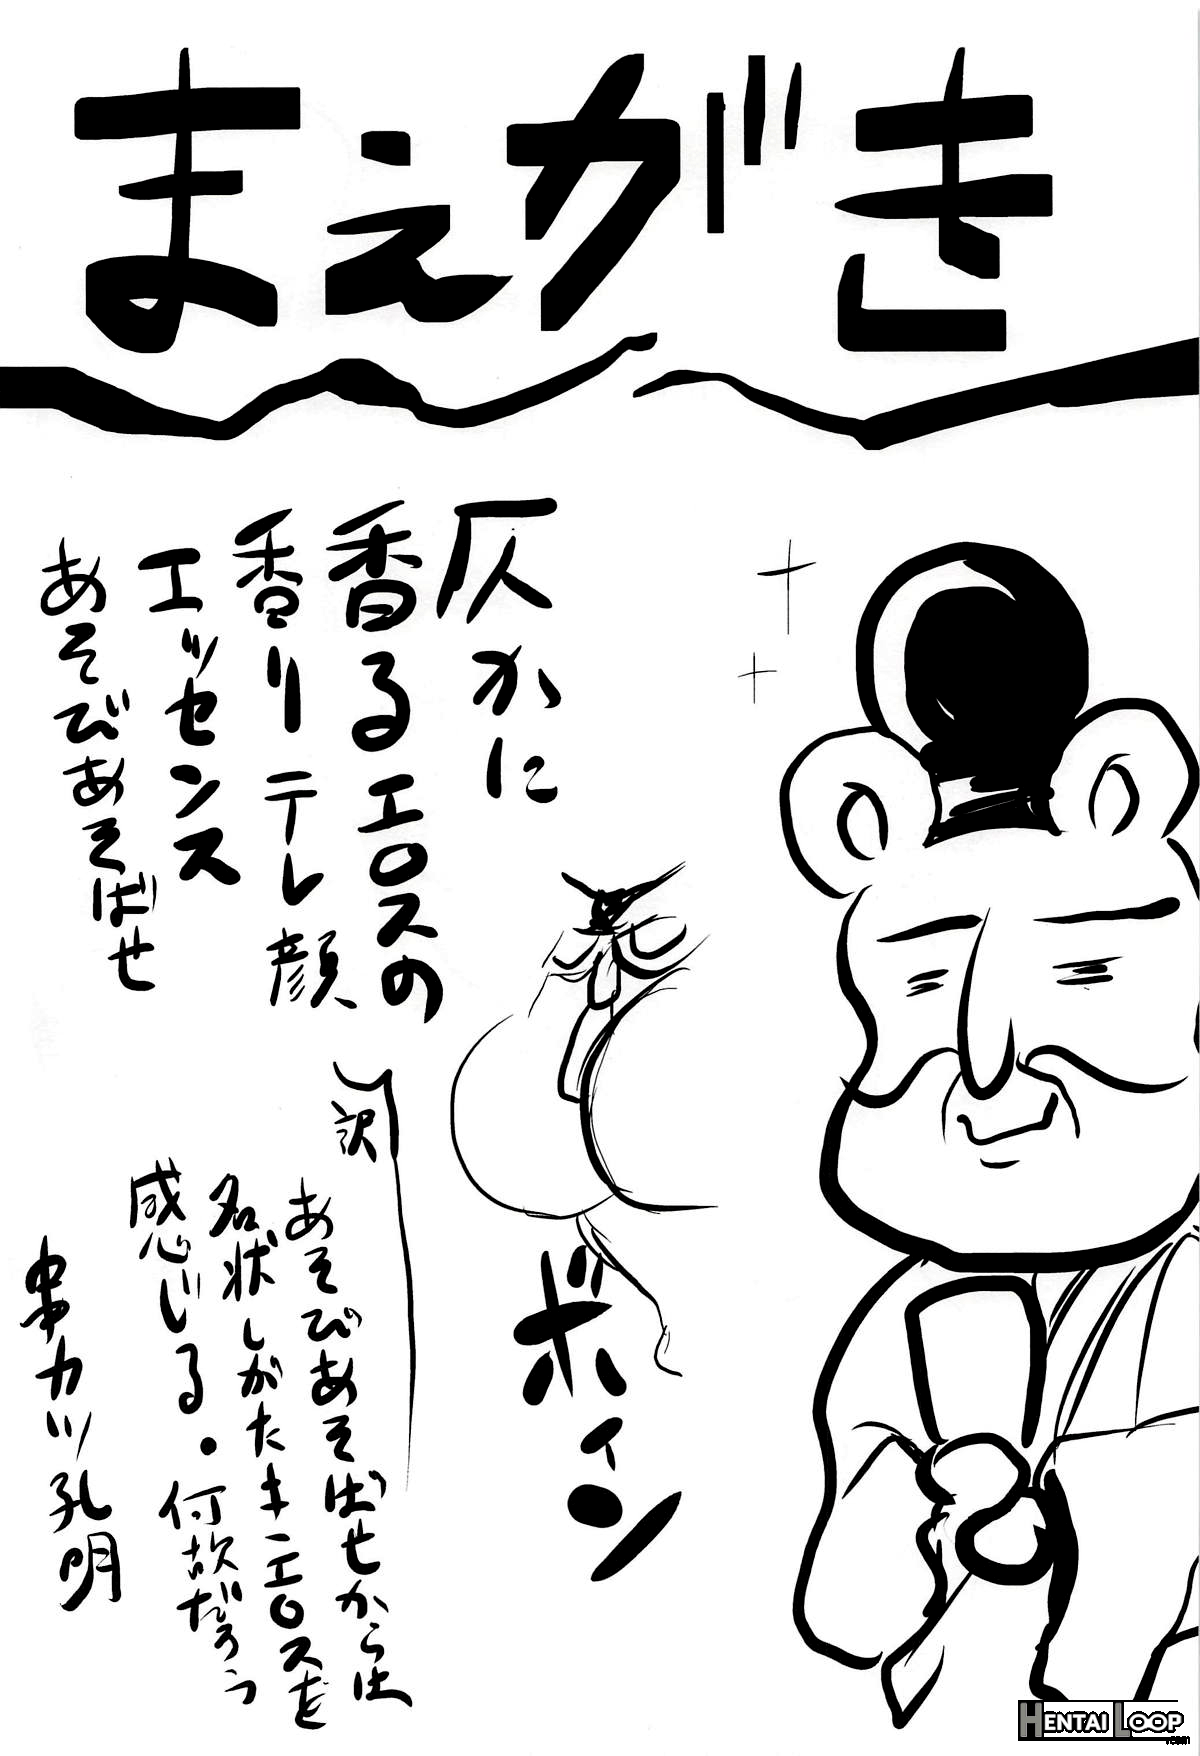 まえがき
仄かに
香るエロスの
香りテレ顔
エッセンス
あそびあそばせ
ボイン
訳
あそびあそばせからは
名状しがたきエロスを
感じる。何故だろう
串カツ孔明
HENTAI LOOP
.com